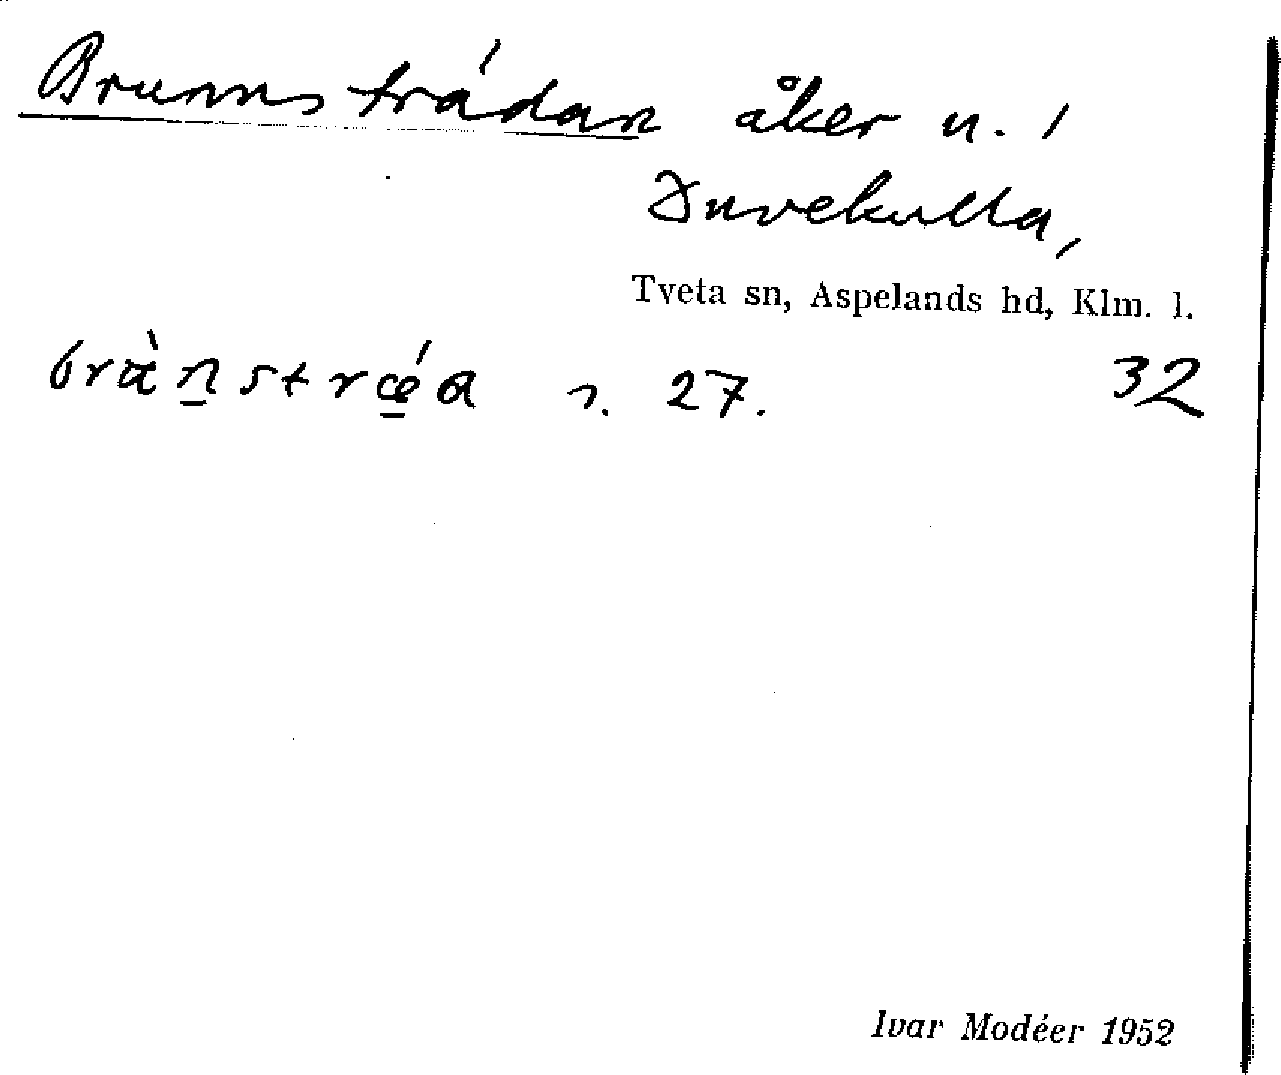 Brunnsträdan åker n. 1
Duvekulla,
Tveta sn, Aspelands hd, Klm. l.
s. 27. 32
Ivar Modéer 1952